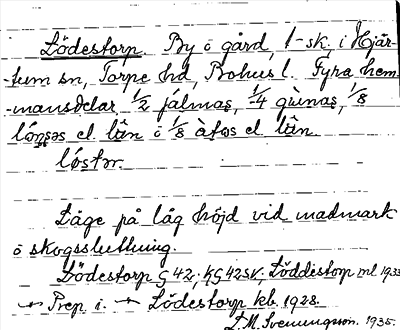 Lödestorp. By o gård, 1-sk, i Hjär-
tum sn, Torpe hd Bohus l. Fyra hem-
mansdelar, 1/2 jálmas, 1/4 gùnas, 1/8
el. län o 1/8 el. län.
lǿstər.
Läge på låg höjd vid madmark
o skogssluttning.
Lödestorp G 42; KG 42SK, Löddestorp ml 1933
Prep. i. Lödestorp kb. 1928.
L. M. Svenungsson. 1935.